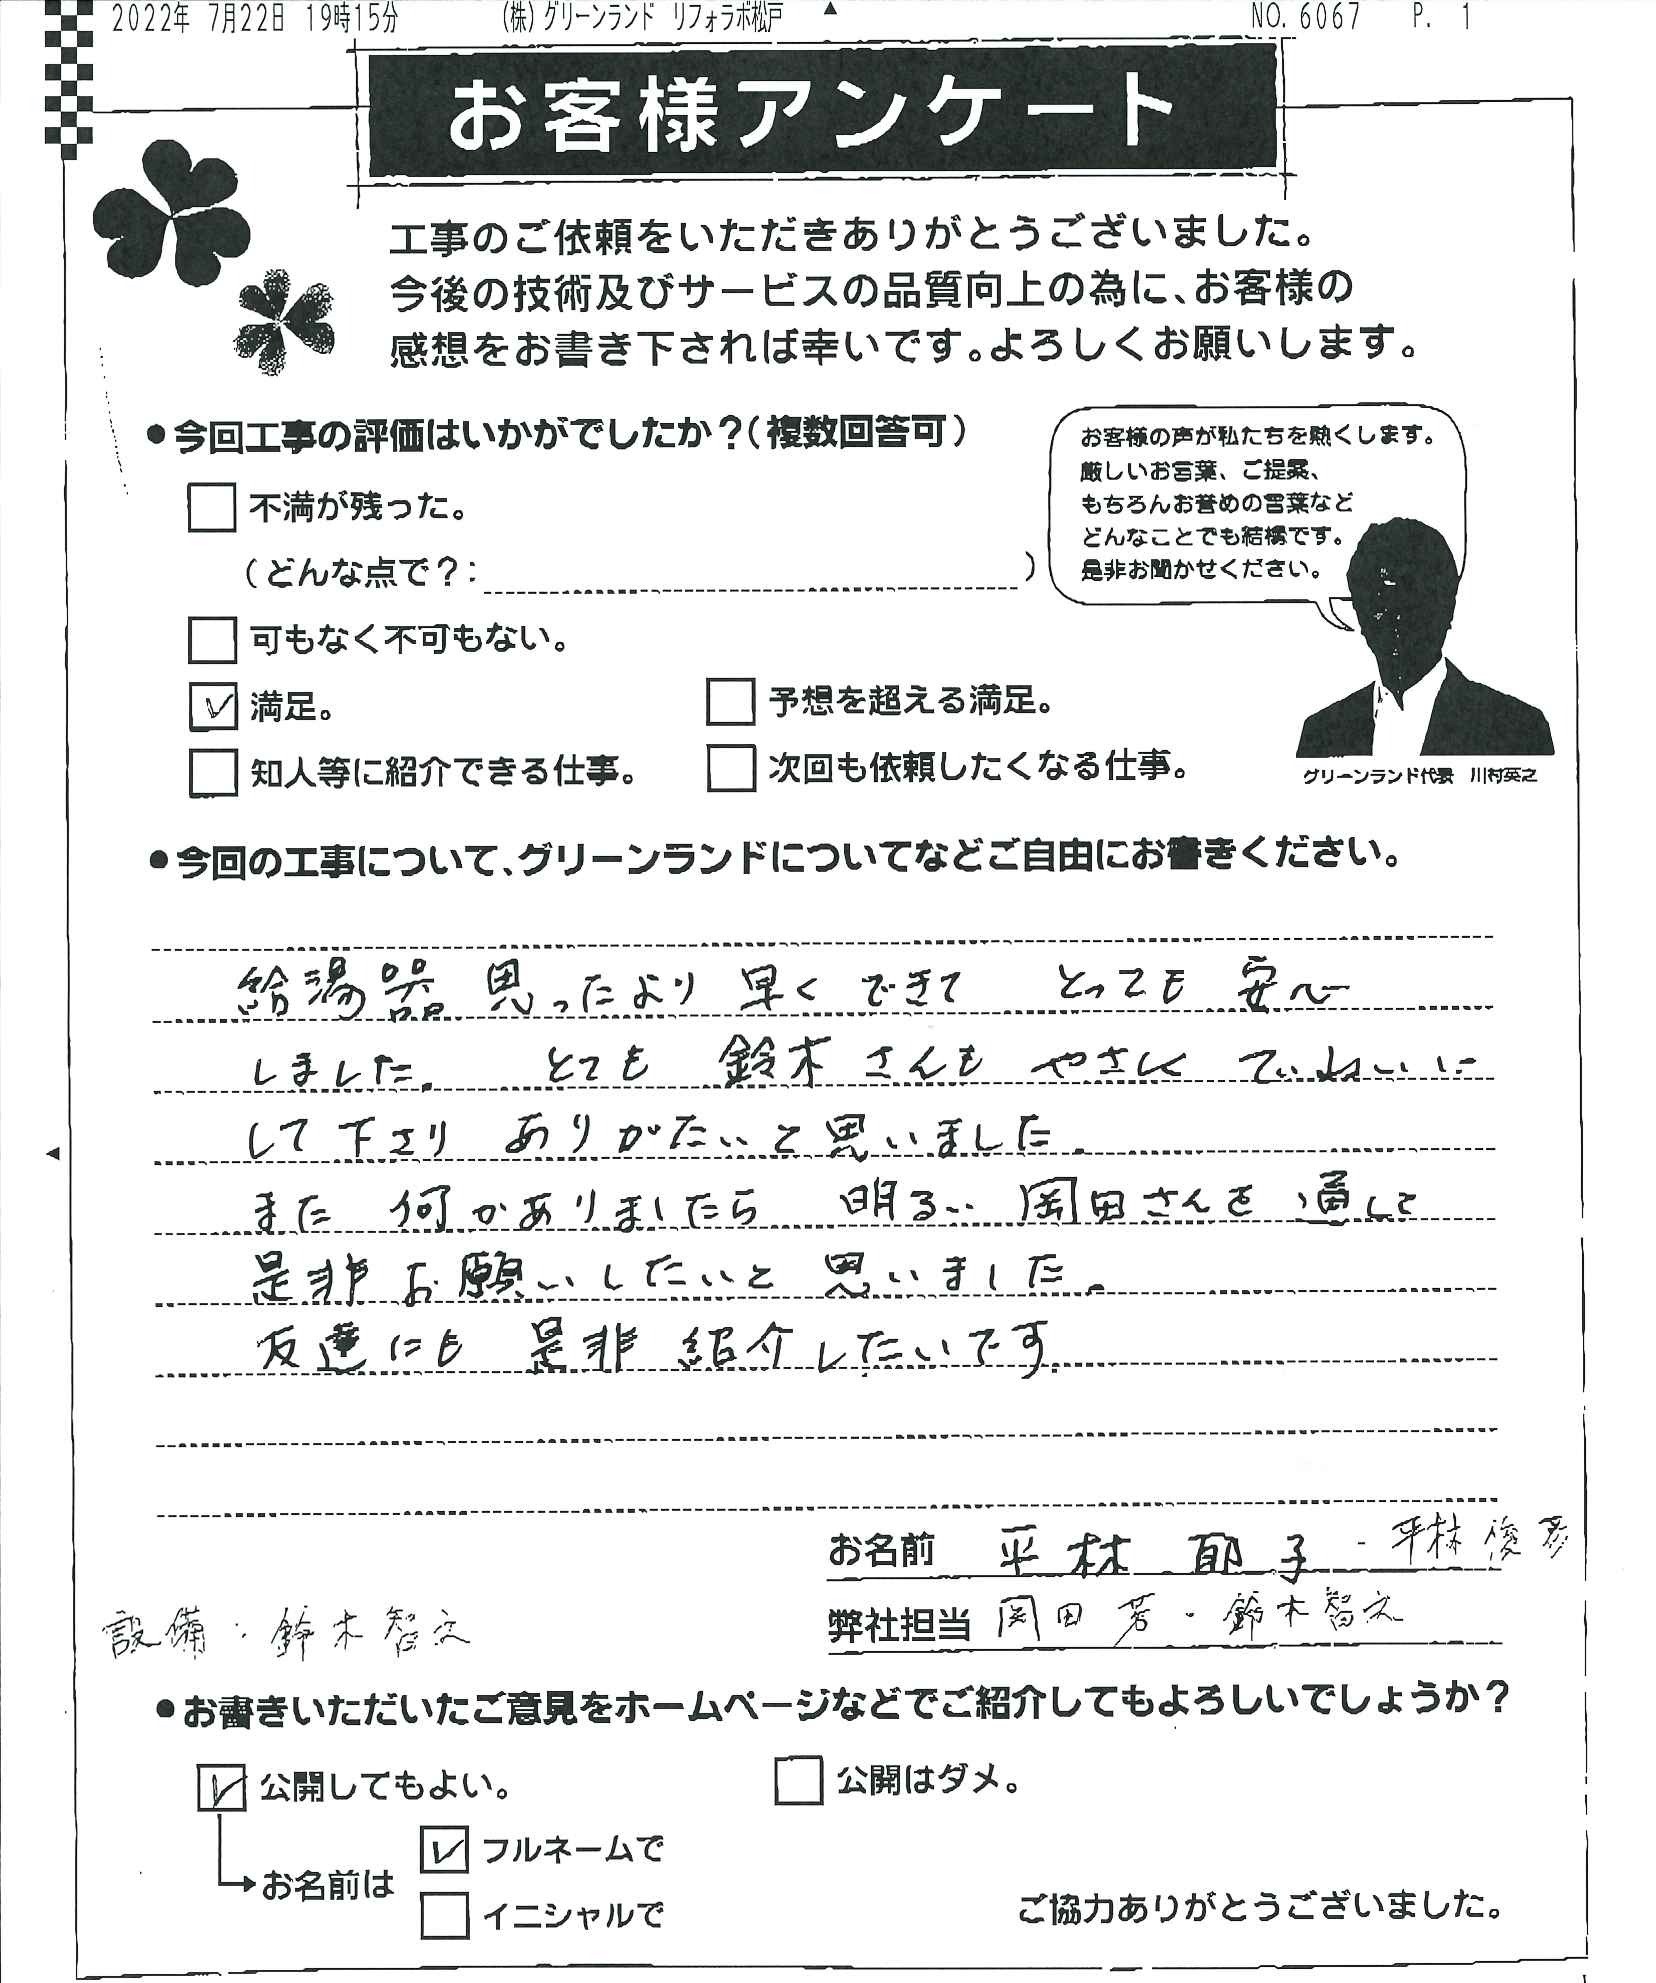 2022年 7月22日 19時15分 (株)グリーンランド リフォラボ松戸 NO. 6067 P. 1
お客様アンケート
工事のご依頼をいただきありがとうございました。
今後の技術及びサービスの品質向上の為に、お客様の
感想をお書き下されば幸いです。よろしくお願いします。
●今回工事の評価はいかがでしたか？(複数回答可)
不満が残った。
(どんな点で？: )
可もなく不可もない。
満足。
予想を超える満足。
知人等に紹介できる仕事。
次回も依頼したくなる仕事。
お客様の声が私たちを熱くします。
厳しいお言葉、ご提案、
もちろんお誉めの言葉など
どんなことでも結構です。
是非お聞かせください。
グリーンランド代表 川村英之
●今回の工事について、グリーンランドについてなどご自由にお書きください。
給湯器 思ったより 早く できて とっても 安心
しました。 とても 鈴木 さんも やさしく ていねいに
して下さり ありがたいと思いました。
また 何かありましたら 明るい 岡田さんを 通して
是非お願いしたいと 思いました。
友達にも 是非 紹介したいです。
お名前 平林 郁子・平林 俊彦
弊社担当 岡田 ・鈴木智文
設備・鈴木智文
●お書きいただいたご意見をホームページなどでご紹介してもよろしいでしょうか？
公開してもよい。
公開はダメ。
お名前は
フルネームで
イニシャルで
ご協力ありがとうございました。